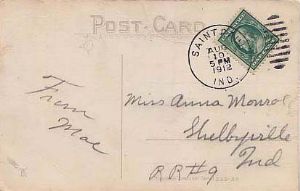 POST-CARD
SAINT
AUG
10
5 PM
1912
IND.
From
Mae
Miss Anna Monroe
Shelbyville
Ind
RR#9